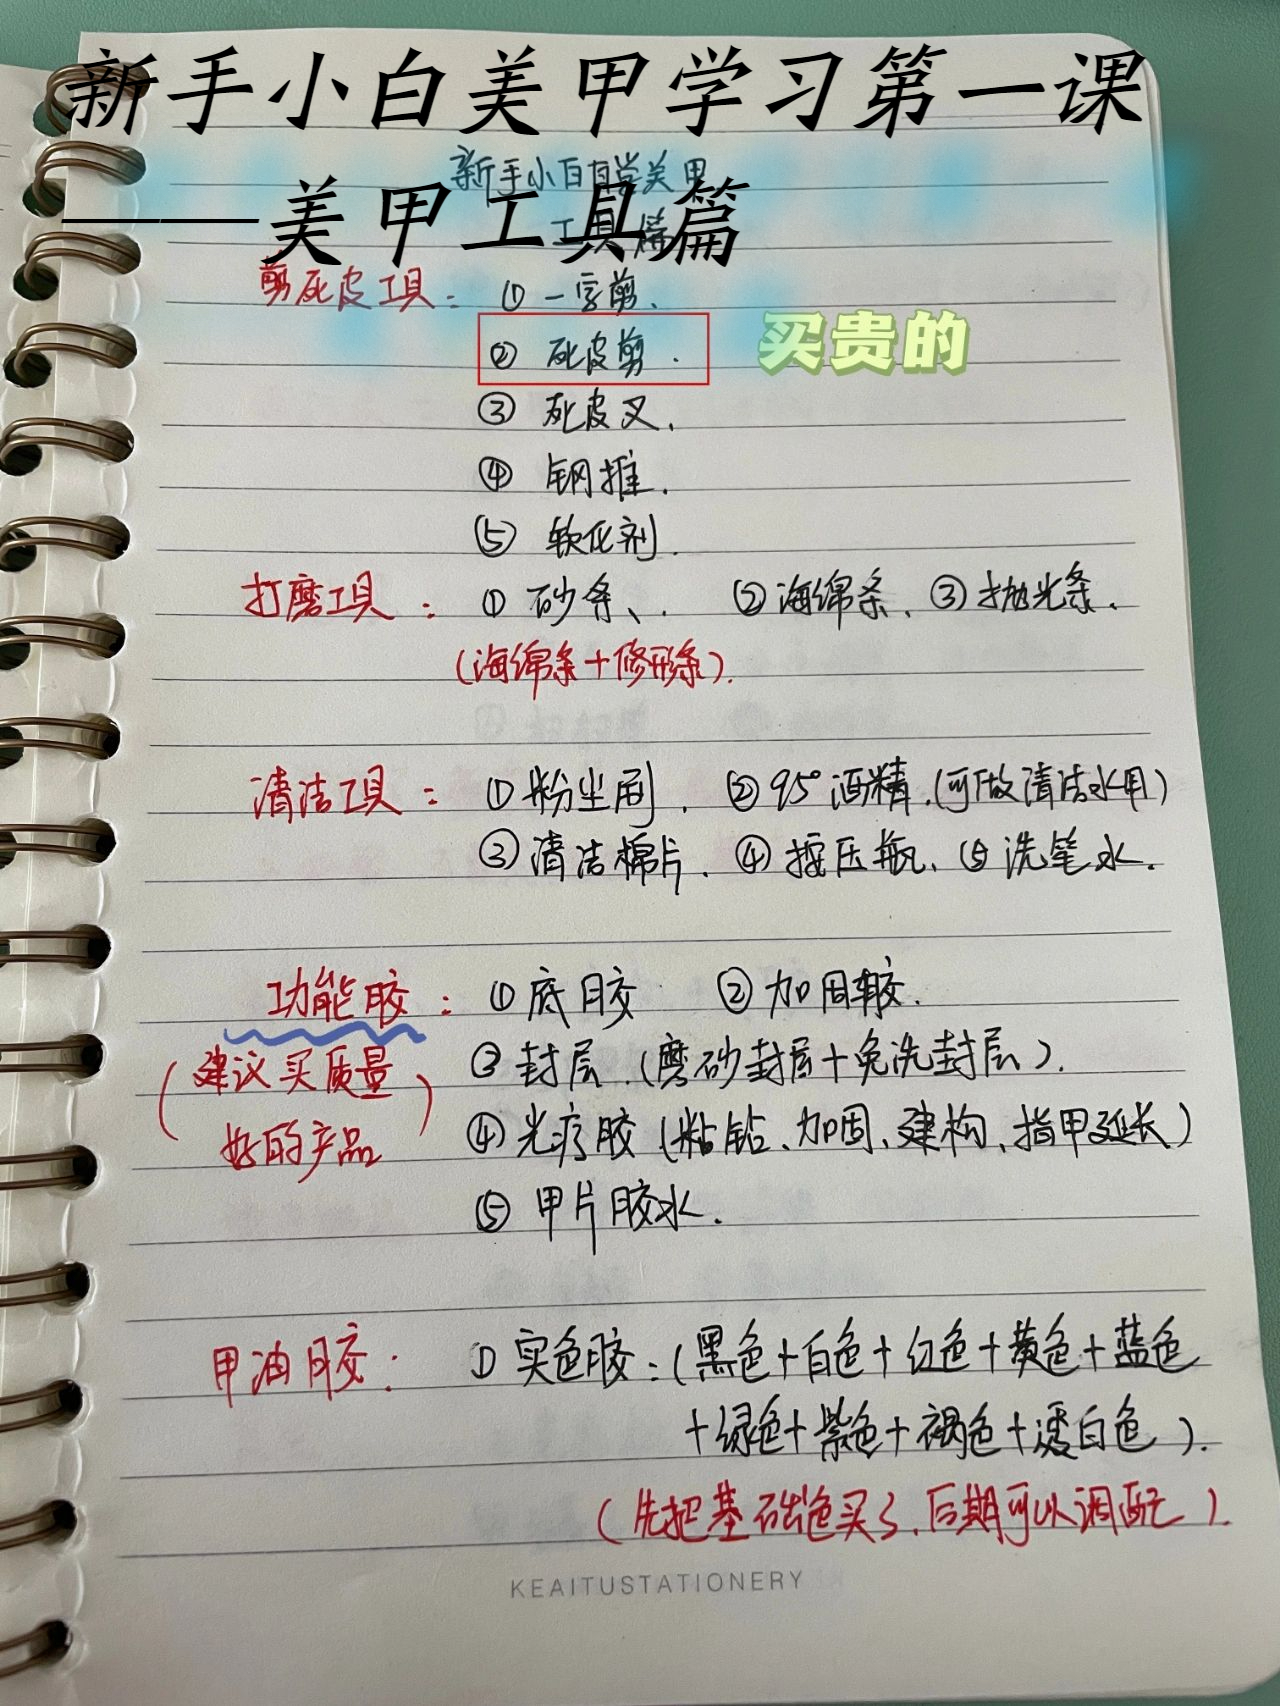 新手小白美甲学习第一课
——美甲工具篇
新手小白自学美甲
工具篇
剪死皮工具： ① 一字剪.
② 死皮剪. 买贵的
③ 死皮叉.
④ 钢推.
⑤ 软化剂.
打磨工具： ① 砂条、. ② 海绵条. ③ 抛光条.
(海绵条+修形条).
清洁工具： ① 粉尘刷. ② 95°酒精.(可做清洁水用)
③ 清洁棉片. ④ 按压瓶、⑤ 洗笔水.
功能胶： ① 底胶 ② 加固胶.
(建议买质量
好的产品)
③ 封层.(磨砂封层+免洗封层).
④ 光疗胶(粘钻、加固、建构、指甲延长)
⑤ 甲片胶水.
甲油胶： ① 实色胶：(黑色+白色+红色+黄色+蓝色
+绿色+紫色+褐色+透白色).
(先把基础色买了.后期可以调配).
KEAITUSTATIONERY